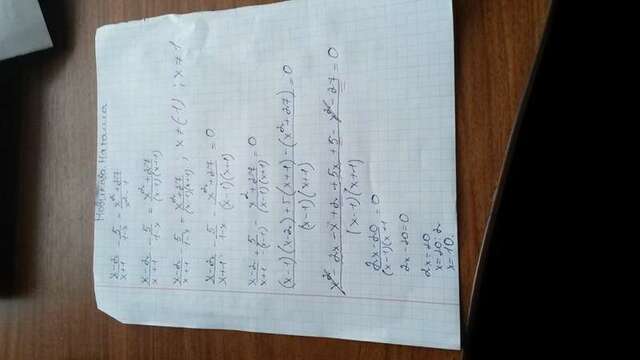 Новикова Наталия
(x-2)/(x+1) - 5/(1-x) = (x²+27)/(x²-1)
(x-2)/(x+1) - 5/(1-x) = (x²+27)/((x-1)(x+1))
(x-2)/(x+1) - 5/(1-x) = (x²+27)/((x-1)(x+1)) ; x≠(-1) ; x≠1
(x-2)/(x+1) - 5/(1-x) - (x²+27)/((x-1)(x+1)) = 0
(x-2)/(x+1) + 5/(x-1) - (x²+27)/((x-1)(x+1)) = 0
((x-1)(x-2)+5(x+1)-(x²+27))/((x-1)(x+1)) = 0
(x²-2x-x+2+5x+5-x²-27)/((x-1)(x+1)) = 0
(2x-20)/((x-1)(x+1) = 0
2x-20=0
2x=20
x=20:2
x=10.